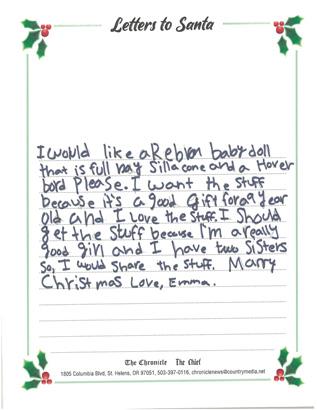 Letters to Santa
I would like a Rebron baby doll
that is full bay Sillacone and a Hover
bord Please. I want the stuff
because it's a good gift for a 9 year
old and I Love the Stuff. I Should
get the Stuff because I'm a really
good girl and I have two Sisters
So, I would Share the Stuff. Marry
Christmas Love, Emma.
The Chronicle The Chief
1805 Columbia Blvd, St. Helens, OR 97051, 503-397-0116, chroniclenews@countrymedia.net